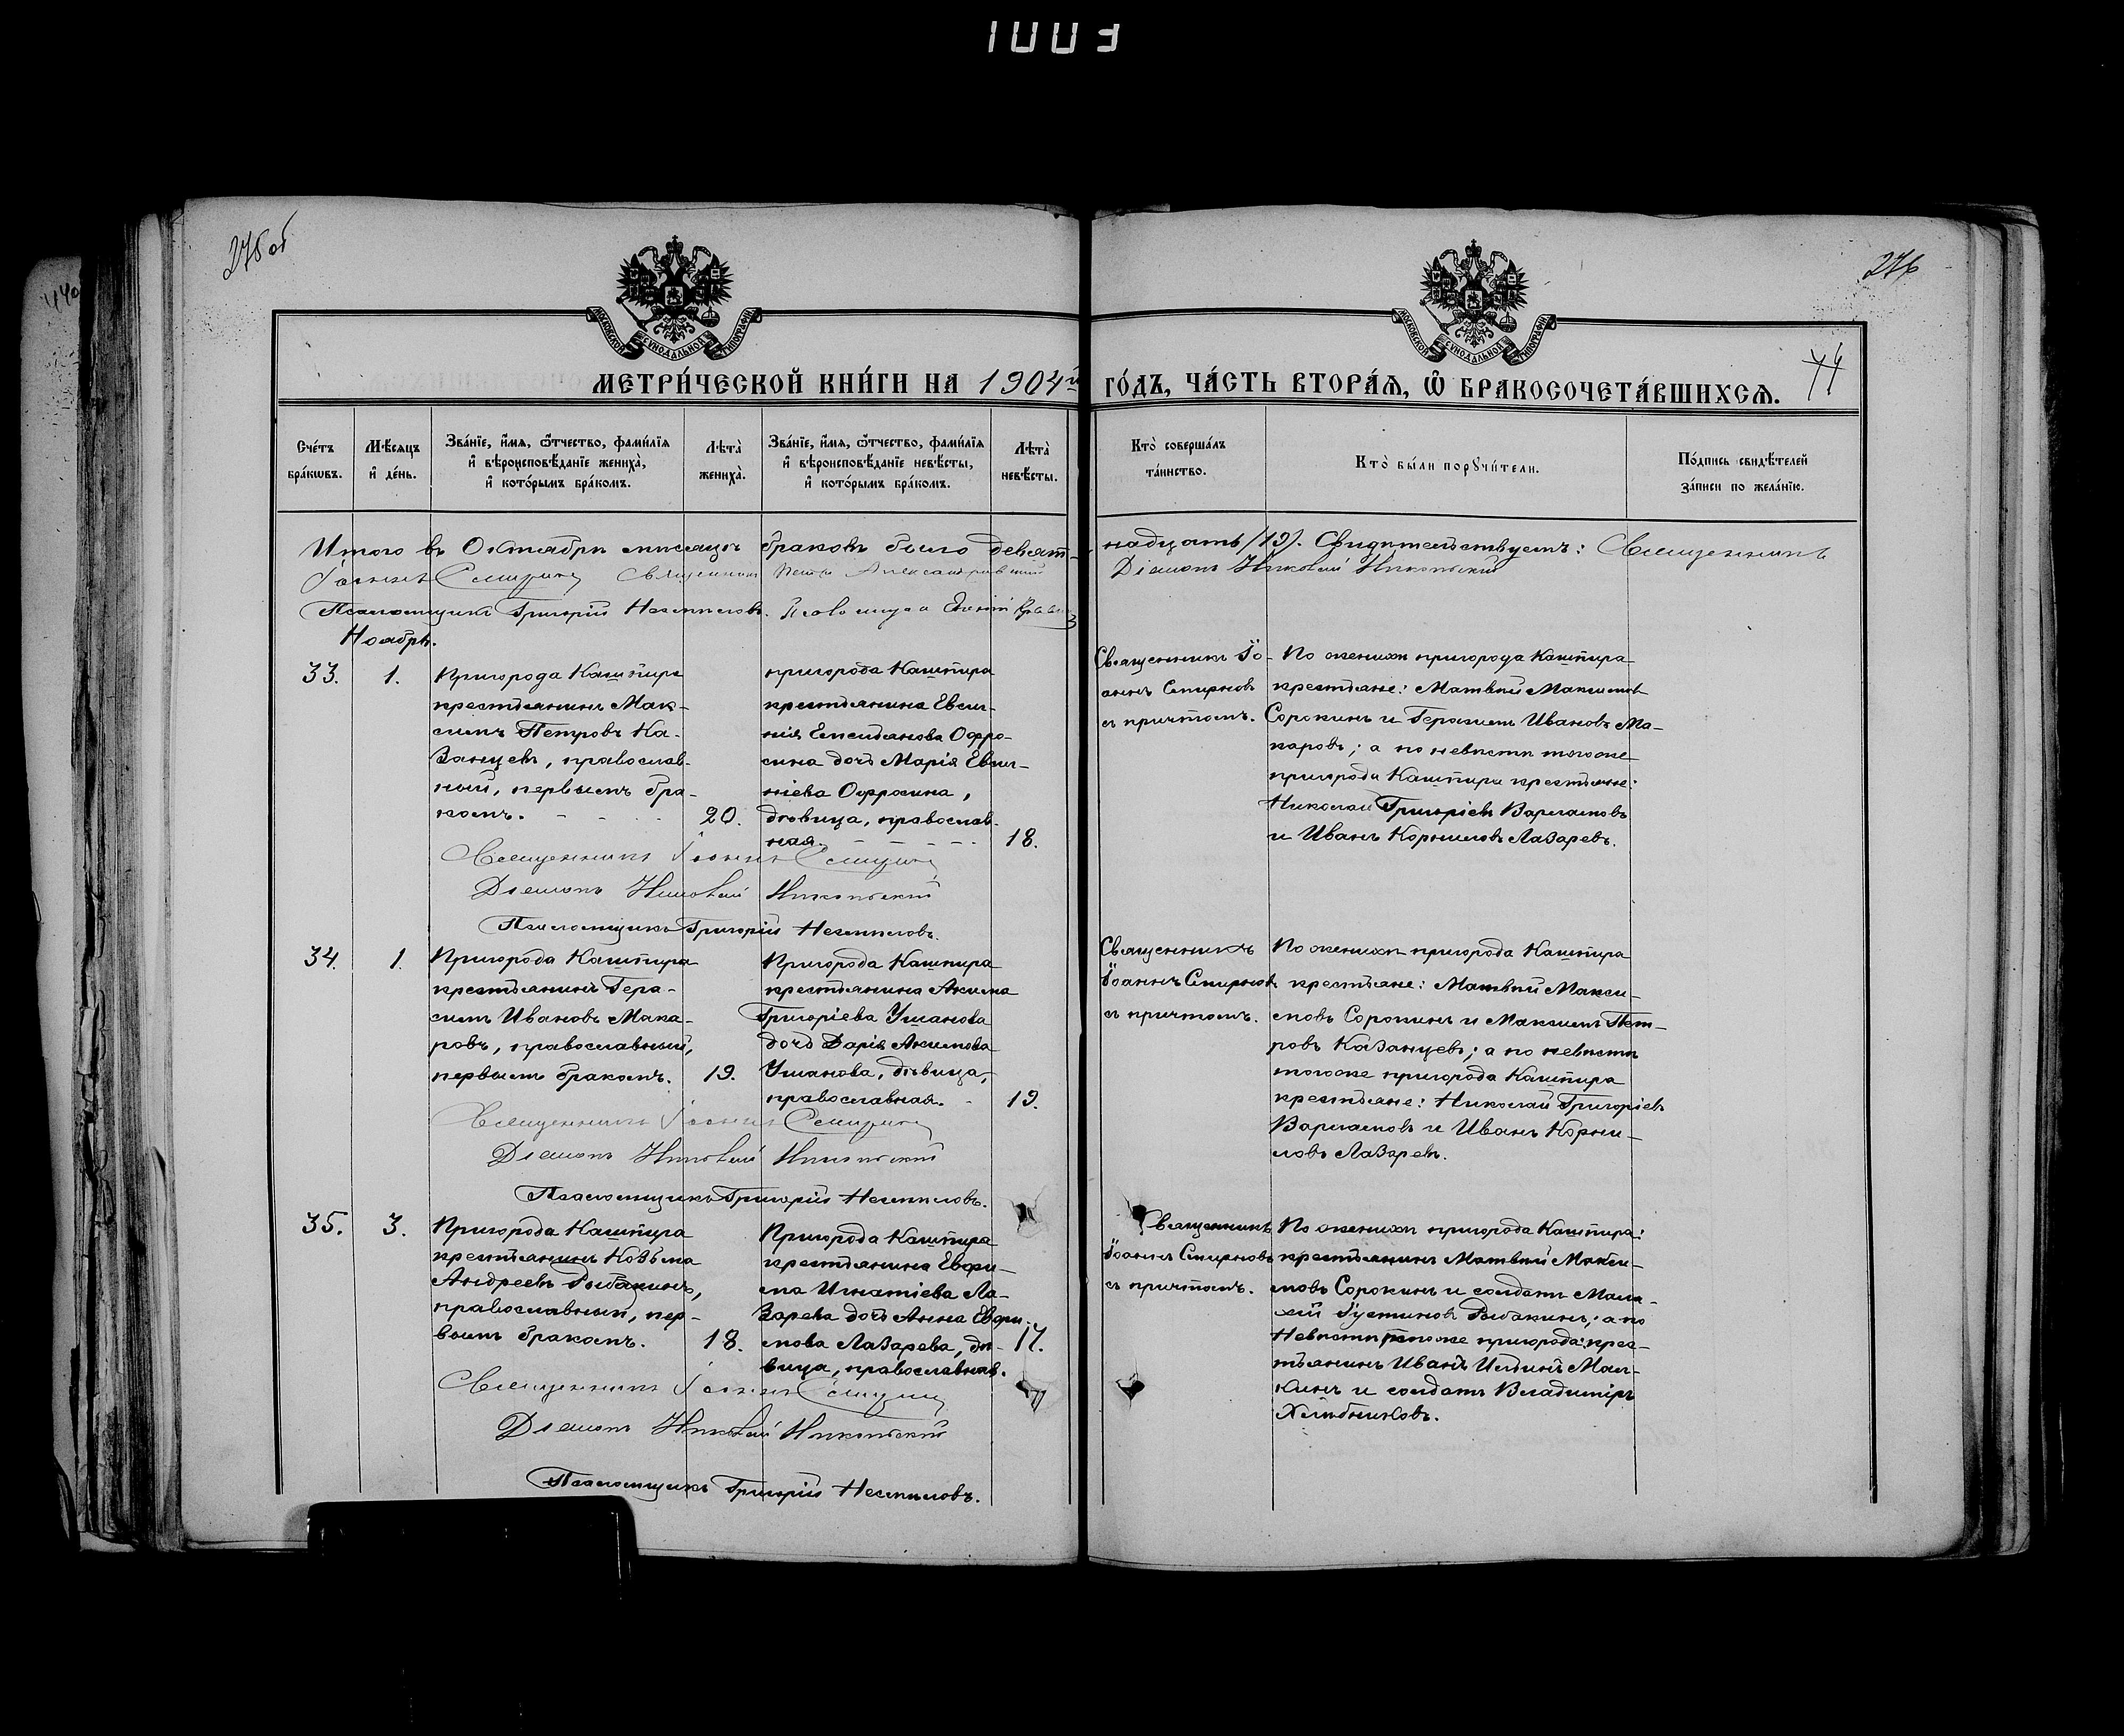 1003
275 об
276
МОСКОВСКОЙ СѴНОДАЛЬНОЙ ТИПОГРАФІИ
МОСКОВСКОЙ СѴНОДАЛЬНОЙ ТИПОГРАФІИ
77
МЕТРИ́ЧЕСКОЙ КНИ́ГИ НА 1904й ГО́ДЪ, ЧА́СТЬ ВТОРА́Я, Ѡ БРАКОСОЧЕТА́ВШИХСЯ.
Сче́тъ бра́кѡвъ.
Мѣ́сяцъ и҆ де́нь.
Зва́нїе, и҆́мя, ѻ҆́тчество, фами́лїя и҆ вѣроисповѣ́данїе жениха̀, и҆ кото́рымъ бра́комъ.
Лѣта̀ жениха̀.
Зва́нїе, и҆́мя, ѻ҆́тчество, фами́лїя и҆ вѣроисповѣ́данїе невѣ́сты, и҆ кото́рымъ бра́комъ.
Лѣта̀ невѣ́сты.
Кто̀ соверша́лъ та́инство.
Кто̀ бы́ли порꙋчи́тели.
По́дпись свидѣ́телей за́писи по жела́нїю.
Итого въ Октябрѣ мѣсяцѣ браковъ было девят-
надцать /19/. Свидѣтельствуемъ: Священникъ
Іоаннъ Смирновъ Священникъ Петръ Александровскій
Діаконъ Николай Никольскій
Псаломщикъ Григорій Несмѣловъ. Псаломщикъ
Ноябрь.
33.
1.
Пригорода Кашпира
крестьянинъ Мак-
симъ Петровъ Ка-
занцевъ, православ-
ный, первымъ бра-
комъ. - - -
20.
пригорода Кашпира
крестьянина Евги-
нія Емельянова Офро-
сина дочь Марія Евги-
ніева Офросина,
дѣвица, православ-
ная. - - - -
18.
Священникъ Іо-
аннъ Смирновъ
съ причтомъ.
По женихѣ пригорода Кашпира
крестьяне: Матвѣй Максимовъ
Сорокинъ и Герасимъ Ивановъ Ма-
каровъ; а по невѣстѣ тогоже
пригорода Кашпира крестьяне:
Николай Григоріевъ Варламовъ
и Иванъ Корниловъ Лазаревъ.
Священникъ Іоаннъ Смирновъ
Діаконъ Николай Никольскій
Псаломщикъ Григорій Несмѣловъ.
34.
1.
Пригорода Кашпира
крестьянинъ Гера-
симъ Ивановъ Мака-
ровъ, православный,
первымъ бракомъ.
19.
Пригорода Кашпира
крестьянина Акима
Григоріева Ушанова
дочь Дарія Акимова
Ушанова, дѣвица,
православная. -
19.
Священникъ
Іоаннъ Смирновъ
съ причтомъ.
По женихѣ пригорода Кашпира
крестьяне: Матвѣй Макси-
мовъ Сорокинъ и Максимъ Пет-
ровъ Казанцевъ; а по невѣстѣ
тогоже пригорода Кашпира
крестьяне: Николай Григоріевъ
Варламовъ и Иванъ Корни-
ловъ Лазаревъ.
Священникъ Іоаннъ Смирновъ
Діаконъ Николай Никольскій
Псаломщикъ Григорій Несмѣловъ.
35.
3.
Пригорода Кашпира
крестьянинъ Козьма
Андреевъ Рыбакинъ,
православный, пер-
вымъ бракомъ.
18.
Пригорода Кашпира
крестьянина Евфи-
ма Игнатіева Ла-
зарева дочь Анна Евфи-
мова Лазарева, дѣ-
вица, православная.
17.
Священникъ
Іоаннъ Смирновъ
съ причтомъ.
По женихѣ пригорода Кашпира:
крестьянинъ Матвѣй Макси-
мовъ Сорокинъ и солдатъ Мала-
хій Іустиновъ Рыбакинъ; а по
Невѣстѣ тогоже пригорода: крес-
тьянинъ Иванъ Ильинъ Мал-
кинъ и солдатъ Владиміръ
Хлѣбниковъ.
Священникъ Іоаннъ Смирновъ
Діаконъ Николай Никольскій
Псаломщикъ Григорій Несмѣловъ.